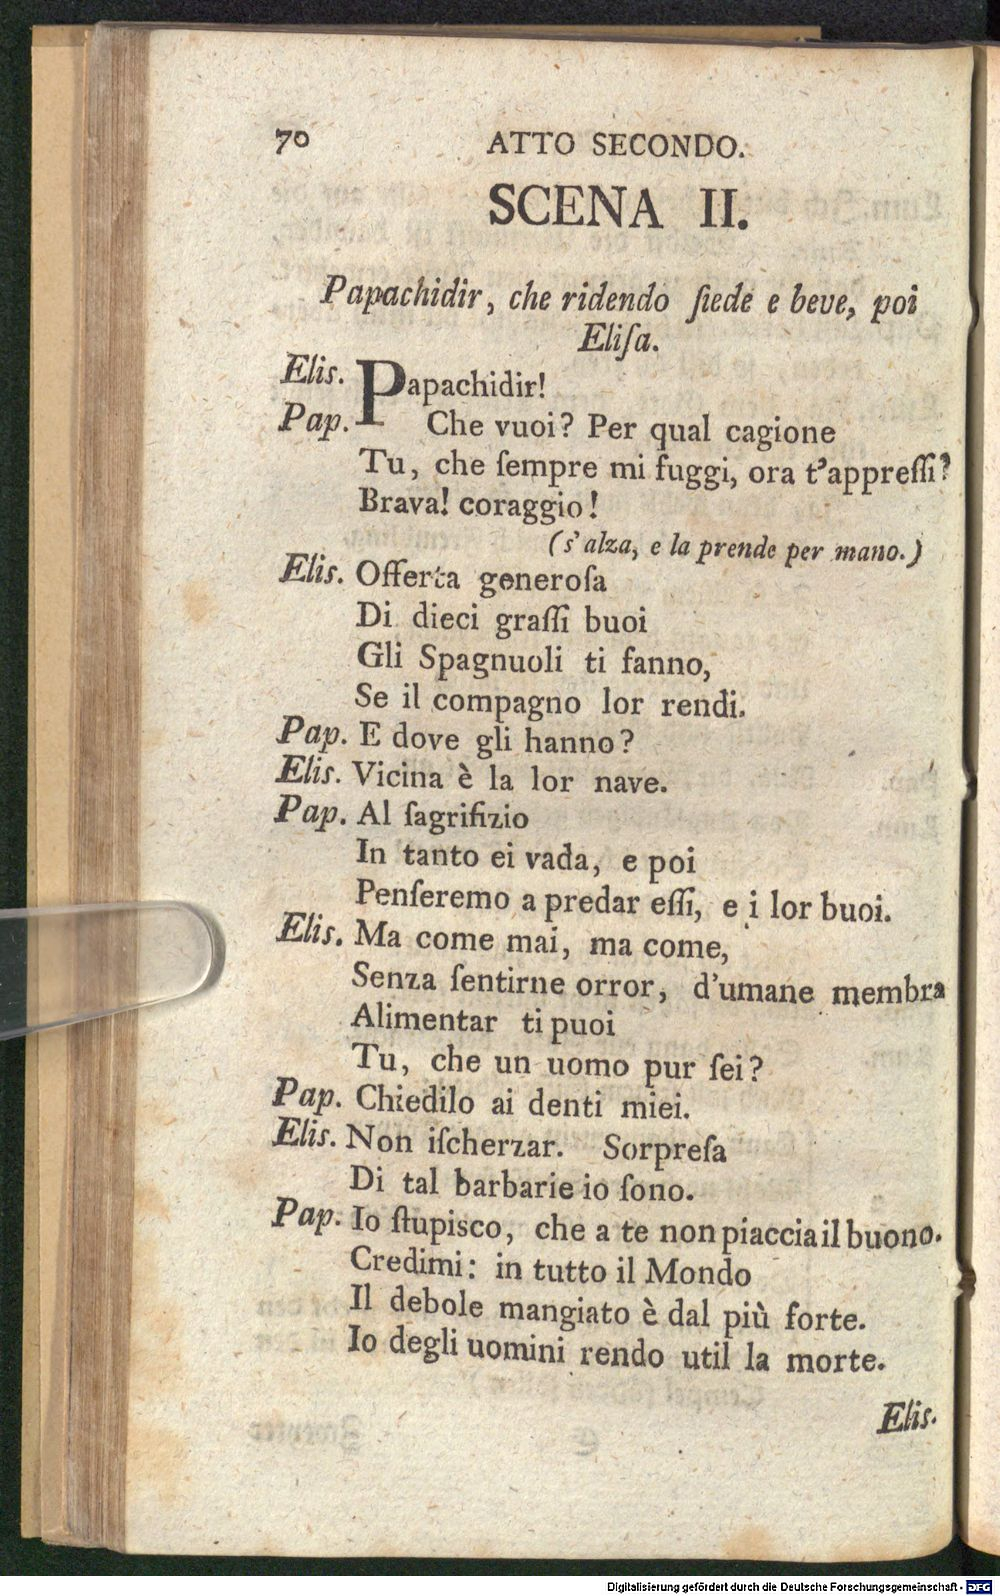 70 ATTO SECONDO.
SCENA II.
Papachidir, che ridendo ſiede e beve, poi
Eliſa.
Elis. Papachidir!
Pap. Che vuoi? Per qual cagione
Tu, che ſempre mi fuggi, ora t'appreſſi?
Brava! coraggio!
(s'alza, e la prende per mano.)
Elis. Offerta generoſa
Di dieci graſſi buoi
Gli Spagnuoli ti fanno,
Se il compagno lor rendi.
Pap. E dove gli hanno?
Elis. Vicina è la lor nave.
Pap. Al ſagrifizio
In tanto ei vada, e poi
Penſeremo a predar eſſi, e i lor buoi.
Elis. Ma come mai, ma come,
Senza ſentirne orror, d'umane membra
Alimentar ti puoi
Tu, che un uomo pur ſei?
Pap. Chiedilo ai denti miei.
Elis. Non iſcherzar. Sorpreſa
Di tal barbarie io ſono.
Pap. Io ſtupisco, che a te non piaccia il buono.
Credimi: in tutto il Mondo
Il debole mangiato è dal più forte.
Io degli uomini rendo util la morte.
Elis.
Digitalisierung gefördert durch die Deutsche Forschungsgemeinschaft - DFG